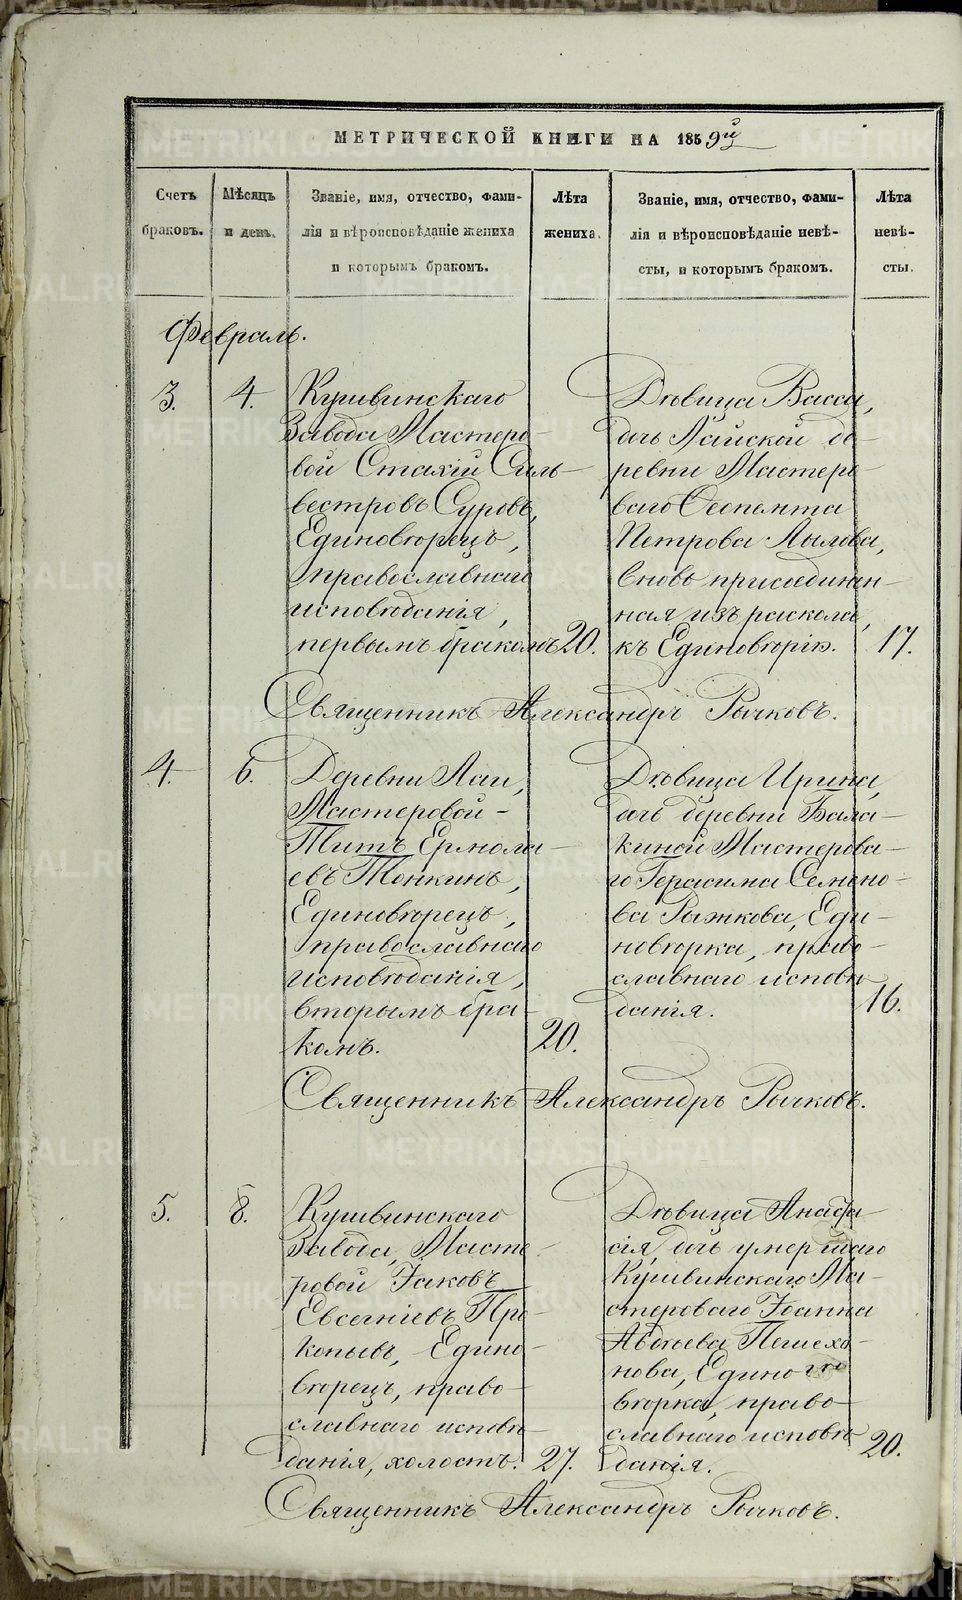 МЕТРИЧЕСКОЙ КНИГИ НА 1859й
Счетъ браковъ.
Мѣсяцъ и день.
Званіе, имя, отчество, фами-
лія и вѣроисповѣданіе жениха
и которымъ бракомъ.
Лѣта жениха.
Званіе, имя, отчество, фами-
лія и вѣроисповѣданіе невѣ-
сты, и которымъ бракомъ.
Лѣта невѣ-
сты.
Февраль.
3.
4.
Кушвинскаго
Завода Мастеро-
вой Стахій Силь-
вестровъ Суровъ,
Единовѣрецъ,
православнаго
исповѣданія,
первымъ бракомъ
20.
Дѣвица Васса,
дочь Лайской де-
ревни Мастеро-
ваго
Петрова Лылова,
вновь присоединен-
ная изъ раскола,
къ Единовѣрію.
17.
Священникъ Александръ Рычковъ.
4.
6.
Деревни Лаи,
Мастеровой-
Титъ Ермола-
евъ Тонкинъ,
Единовѣрецъ,
православнаго
исповѣданія,
вторымъ бра-
комъ.
20.
Дѣвица Ирина,
дочь деревни Бала-
киной Мастерова-
го Герасима Семено-
ва Рыжкова, Еди-
новѣрка, право-
славнаго исповѣ-
данія.
16.
Священникъ Александръ Рычковъ.
5.
8.
Кушвинскаго
Завода, Масте-
ровой Іаковъ
Евсегніевъ Про-
копьевъ, Едино-
вѣрецъ, право-
славнаго исповѣ-
данія, холостъ.
27.
Дѣвица Анафа-
сія, дочь умершаго
Кушвинскаго Ма-
стероваго Іоанна
Авдѣева Пешехо-
нова, Едино-
вѣрка, право-
славнаго исповѣ-
данія.
20.
Священникъ Александръ Рычковъ.
METRIKI.GASO-URAL.RU